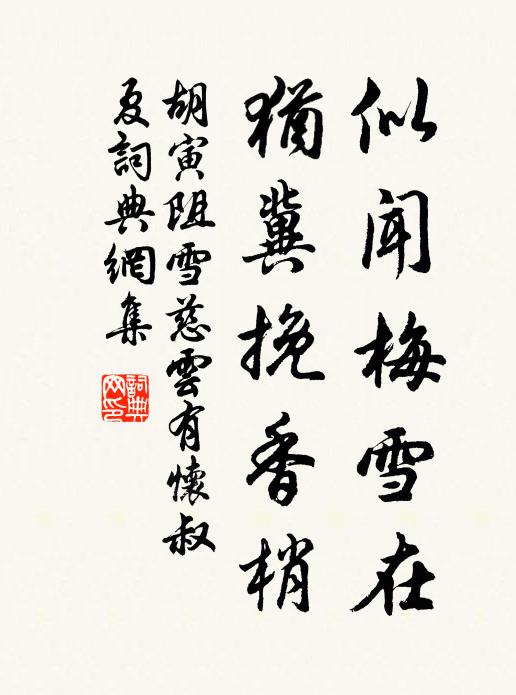 似闻梅雪在
猶冀挽香梢
胡寅阻雪慈雲有懷叔
夏詞典網集
詞典
网印